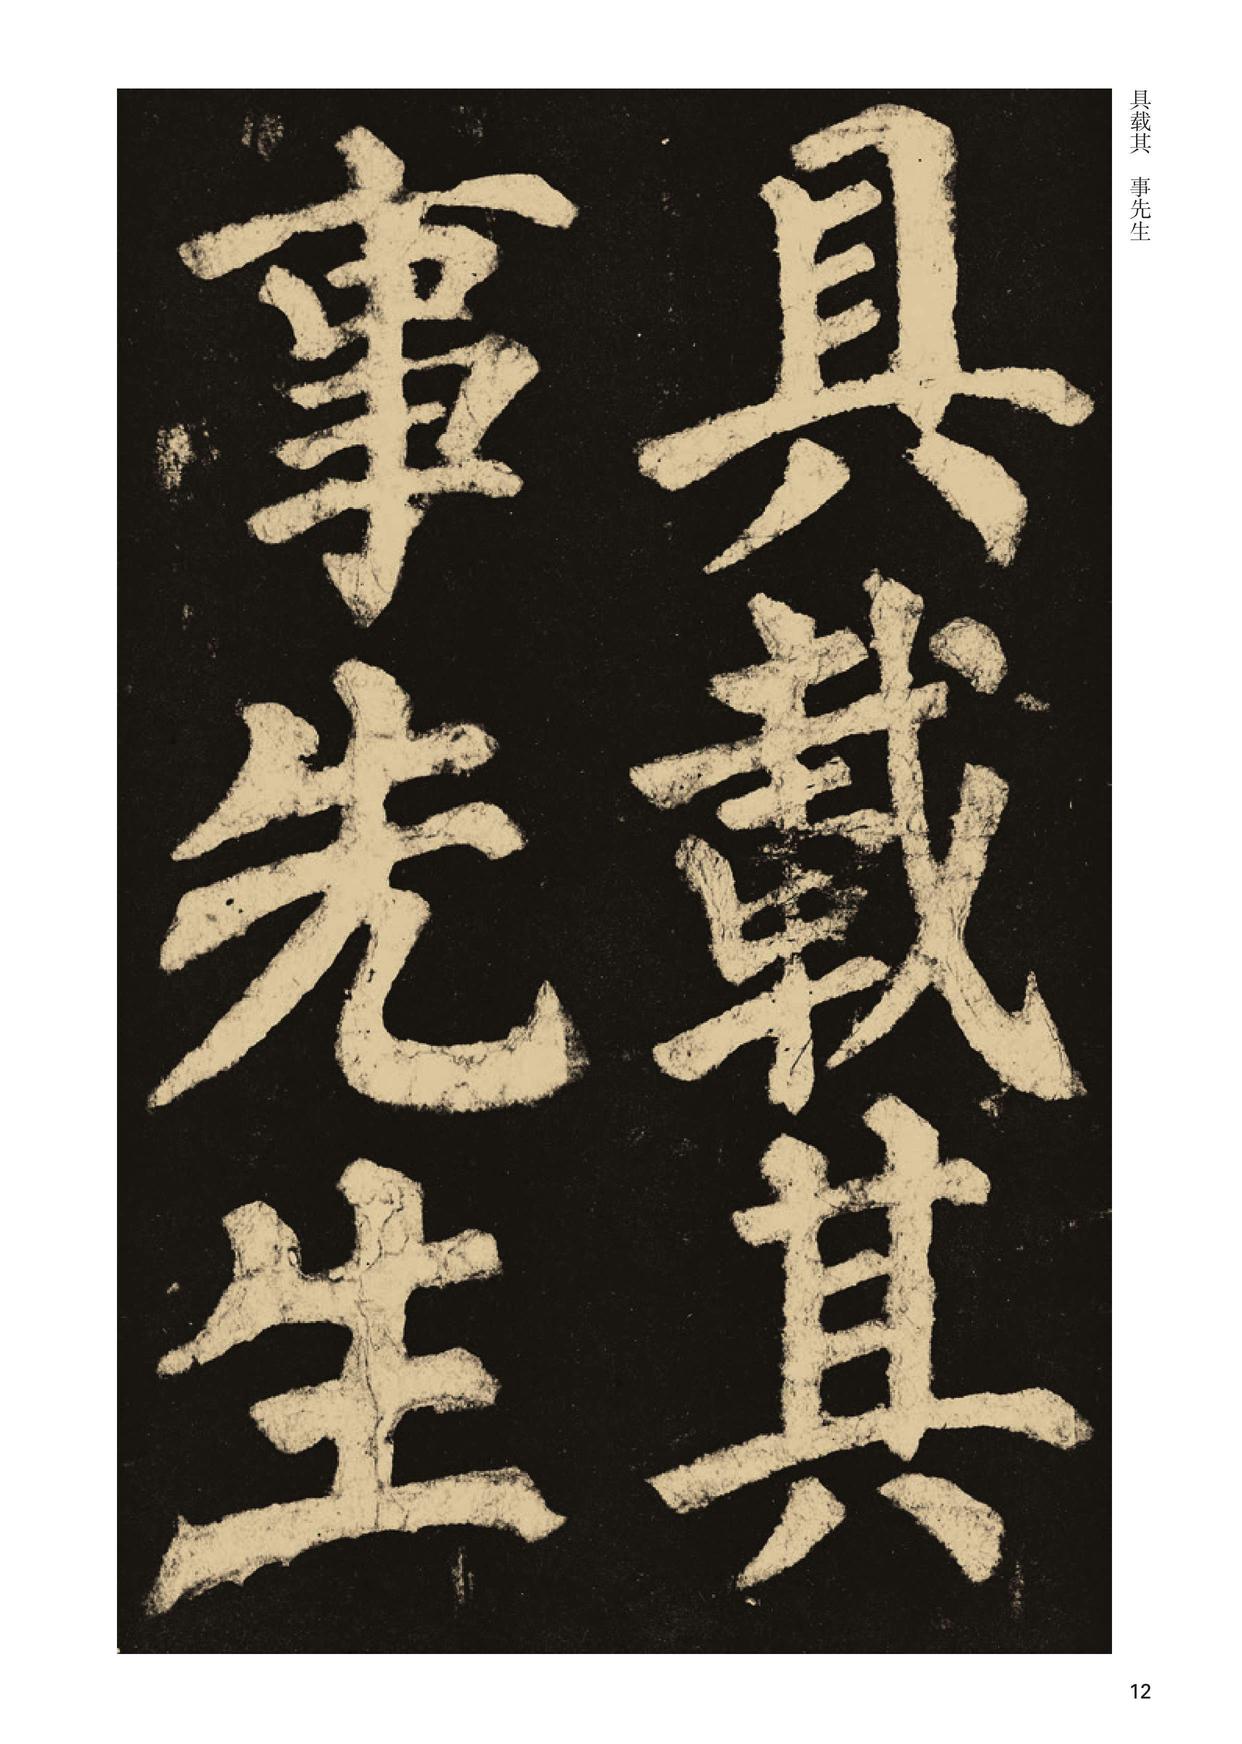 具載其
事先生
具载其 事先生
12